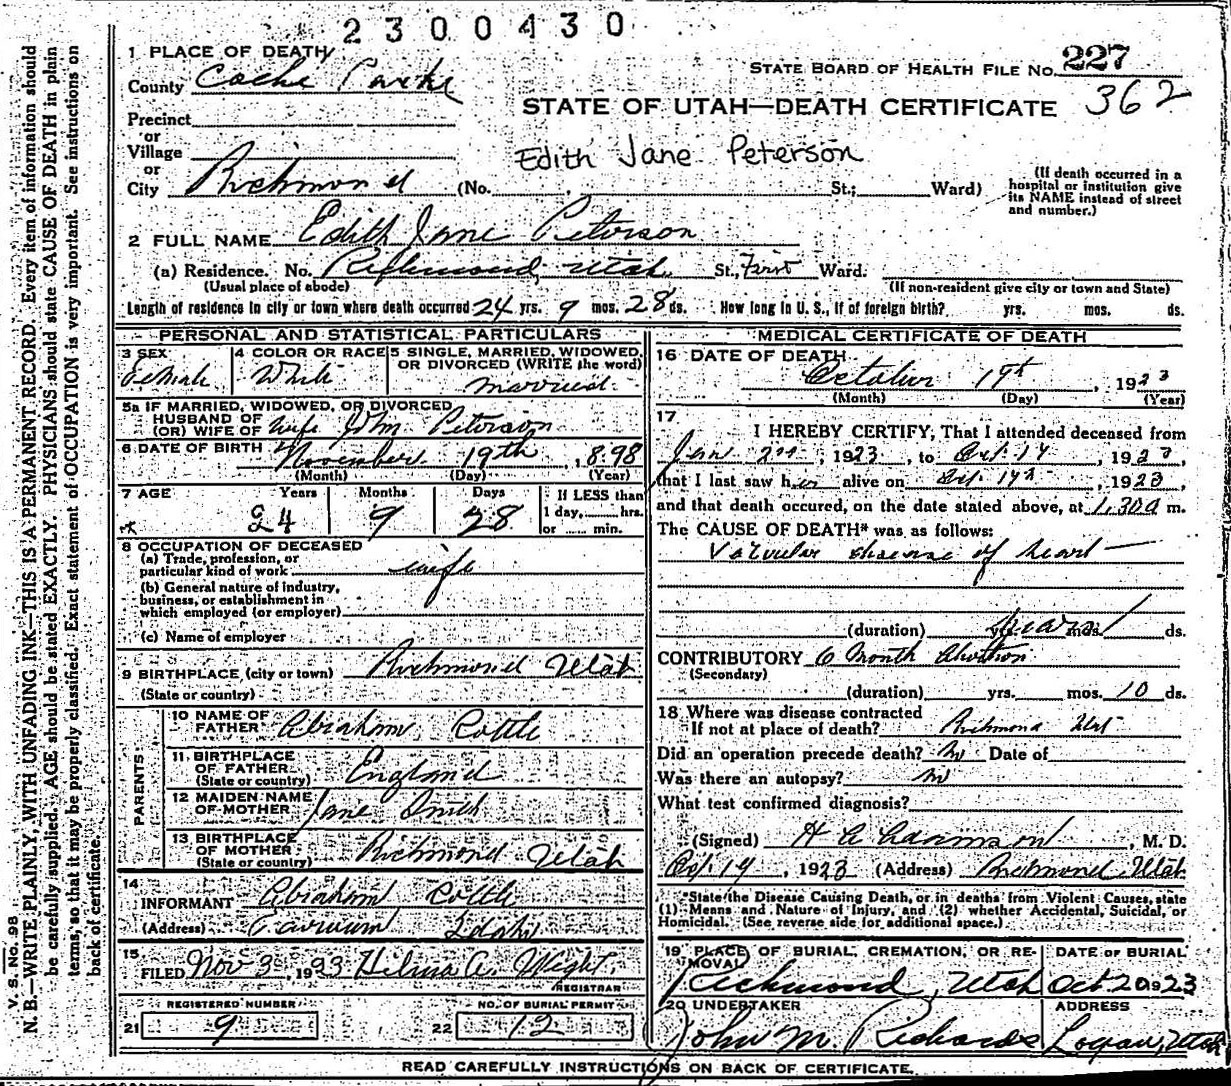 2300430
1 PLACE OF DEATH
County Cache
STATE BOARD OF HEALTH FILE No. 227
STATE OF UTAH—DEATH CERTIFICATE 362
Precinct
or
Village
or
City Richmond (No. , St.; Ward)
Edith Jane Peterson
(If death occurred in a
hospital or institution give
its NAME instead of street
and number.)
2 FULL NAME Edith Jane Peterson
(a) Residence. No. Richmond, Utah. St., First Ward.
(Usual place of abode) (If non-resident give city or town and State)
Length of residence in city or town where death occurred 24 yrs. 9 mos. 28 ds. How long in U. S., if of foreign birth? yrs. mos. ds.
PERSONAL AND STATISTICAL PARTICULARS
3 SEX 4 COLOR OR RACE 5 SINGLE, MARRIED, WIDOWED,
OR DIVORCED (WRITE the word)
Female White married
5a IF MARRIED, WIDOWED, OR DIVORCED
HUSBAND OF
(OR) WIFE OF wife Peterson
6 DATE OF BIRTH November 19th, 898
(Month) (Day) (Year)
7 AGE Years Months Days If LESS than
1 day, hrs.
or min.
24 9 28
8 OCCUPATION OF DECEASED
(a) Trade, profession, or
particular kind of work wife
(b) General nature of industry,
business, or establishment in
which employed (or employer)
(c) Name of employer
9 BIRTHPLACE (city or town) Richmond Utah
(State or country)
PARENTS
10 NAME OF
FATHER Abraham Cottle
11 BIRTHPLACE
OF FATHER England
(State or country)
12 MAIDEN NAME
OF MOTHER Jane
13 BIRTHPLACE
OF MOTHER Richmond Utah
(State or country)
14
INFORMANT Abraham Cottle
(Address) Idaho
15
FILED Nov 3, 1923 Hilma A. Wight
REGISTRAR
REGISTERED NUMBER NO. OF BURIAL PERMIT
21 9 22 12
MEDICAL CERTIFICATE OF DEATH
16 DATE OF DEATH
October 19th, 1923
(Month) (Day) (Year)
17
I HEREBY CERTIFY, That I attended deceased from
Jan 2nd, 1923, to Oct. 19, 1923,
that I last saw her alive on Oct. 19th, 1923,
and that death occured, on the date stated above, at 1.30 a m.
The CAUSE OF DEATH* was as follows:
Valvular disease of heart
(duration) years mos. ds.
CONTRIBUTORY 6 Month Abortion
(Secondary)
(duration) yrs. mos. 10 ds.
18 Where was disease contracted
If not at place of death? Richmond Utah
Did an operation precede death? No Date of
Was there an autopsy? No
What test confirmed diagnosis?
(Signed) H A Adamson, M. D.
Oct. 19, 1923 (Address) Richmond Utah
*State the Disease Causing Death, or in deaths from Violent Causes, state
(1) Means and Nature of Injury, and (2) whether Accidental, Suicidal, or
Homicidal. (See reverse side for additional space.)
19 PLACE OF BURIAL, CREMATION, OR RE-
MOVAL DATE OF BURIAL
Richmond, Utah Oct 20 1923
20 UNDERTAKER ADDRESS
John M. Richards Logan, Utah
READ CAREFULLY INSTRUCTIONS ON BACK OF CERTIFICATE.
V. S. No. 98
N. B.—WRITE PLAINLY, WITH UNFADING INK—THIS IS A PERMANENT RECORD. Every item of information should
be carefully supplied. AGE should be stated EXACTLY. PHYSICIANS should state CAUSE OF DEATH in plain
terms, so that it may be properly classified. Exact statement of OCCUPATION is very important. See instructions on
back of certificate.